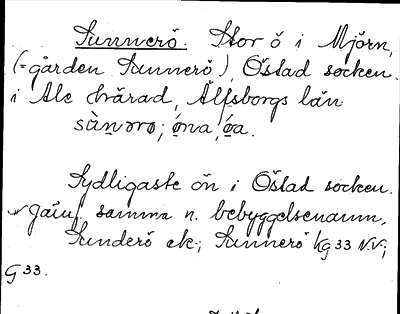 Sunnerö. Stor ö i Mjörn,
(=gården Sunnerö), Östad socken.
i Ale härad, Älfsborgs län
sùn̥ərø; ǿna, ǿa.
Sydligaste ön i Östad socken.
Jäuf. samma n. bebyggelsenamn,
Sunderö ek.; Sunnerö Kg 33 N.V.;
G 33.